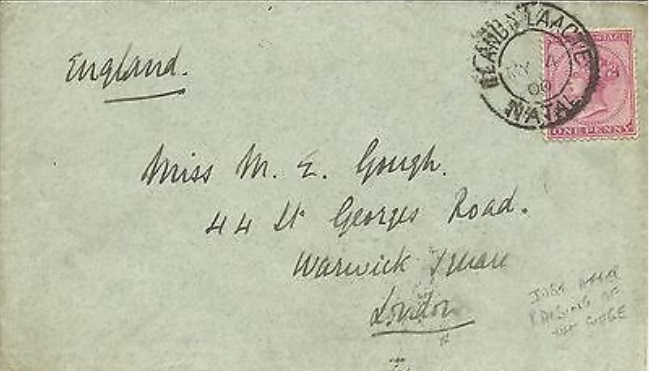 England.
ELANDSLAAGTE
MY 4
00
NATAL
POSTAGE
ONE PENNY
Miss M. E. Gough.
44 St Georges Road.
Warwick Square
London
JUST AFTER
RAISING OF
THE SIEGE